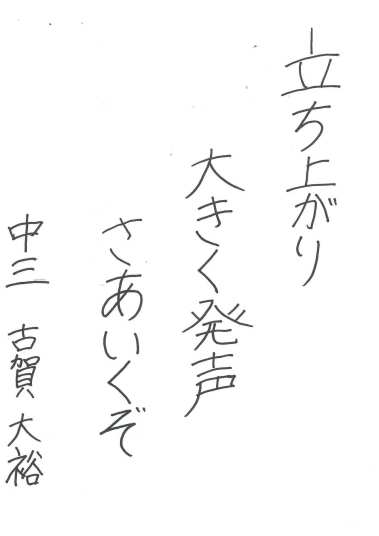 立ち上がり
大きく発声
さあいくぞ
中三 古賀大裕